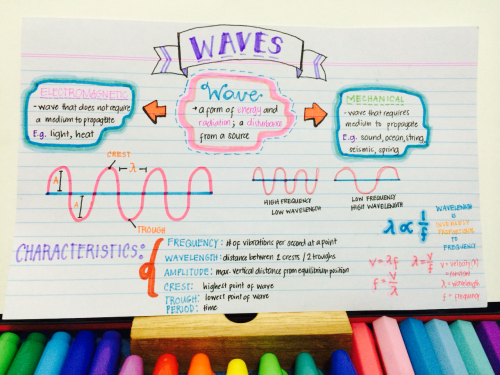 WAVES
ELECTROMAGNETIC
- wave that does not require
a medium to propagate
E.g. light, heat
Wave
→ a form of energy and
radiation; a disturbance
from a source
MECHANICAL
- wave that requires
medium to propagate
E.g. sound, ocean, string,
seismic, spring
CREST
λ
A
A
TROUGH
HIGH FREQUENCY
LOW WAVELENGTH
LOW FREQUENCY
HIGH WAVELENGTH
λ ∝ 1/f
WAVELENGTH
IS
INVERSELY
PROPORTIONAL
TO
FREQUENCY
CHARACTERISTICS:
FREQUENCY: # of vibrations per second at a point
WAVELENGTH: distance between 2 crests / 2 troughs
AMPLITUDE: max. vertical distance from equilibrium position
CREST: highest point of wave
TROUGH: lowest point of wave
PERIOD: time
v = λf
λ = v/f
f = v/λ
v = velocity
λ = wavelength
f = frequency